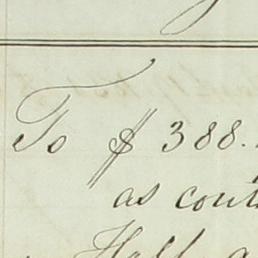 To $ 388.
as cont
Half a